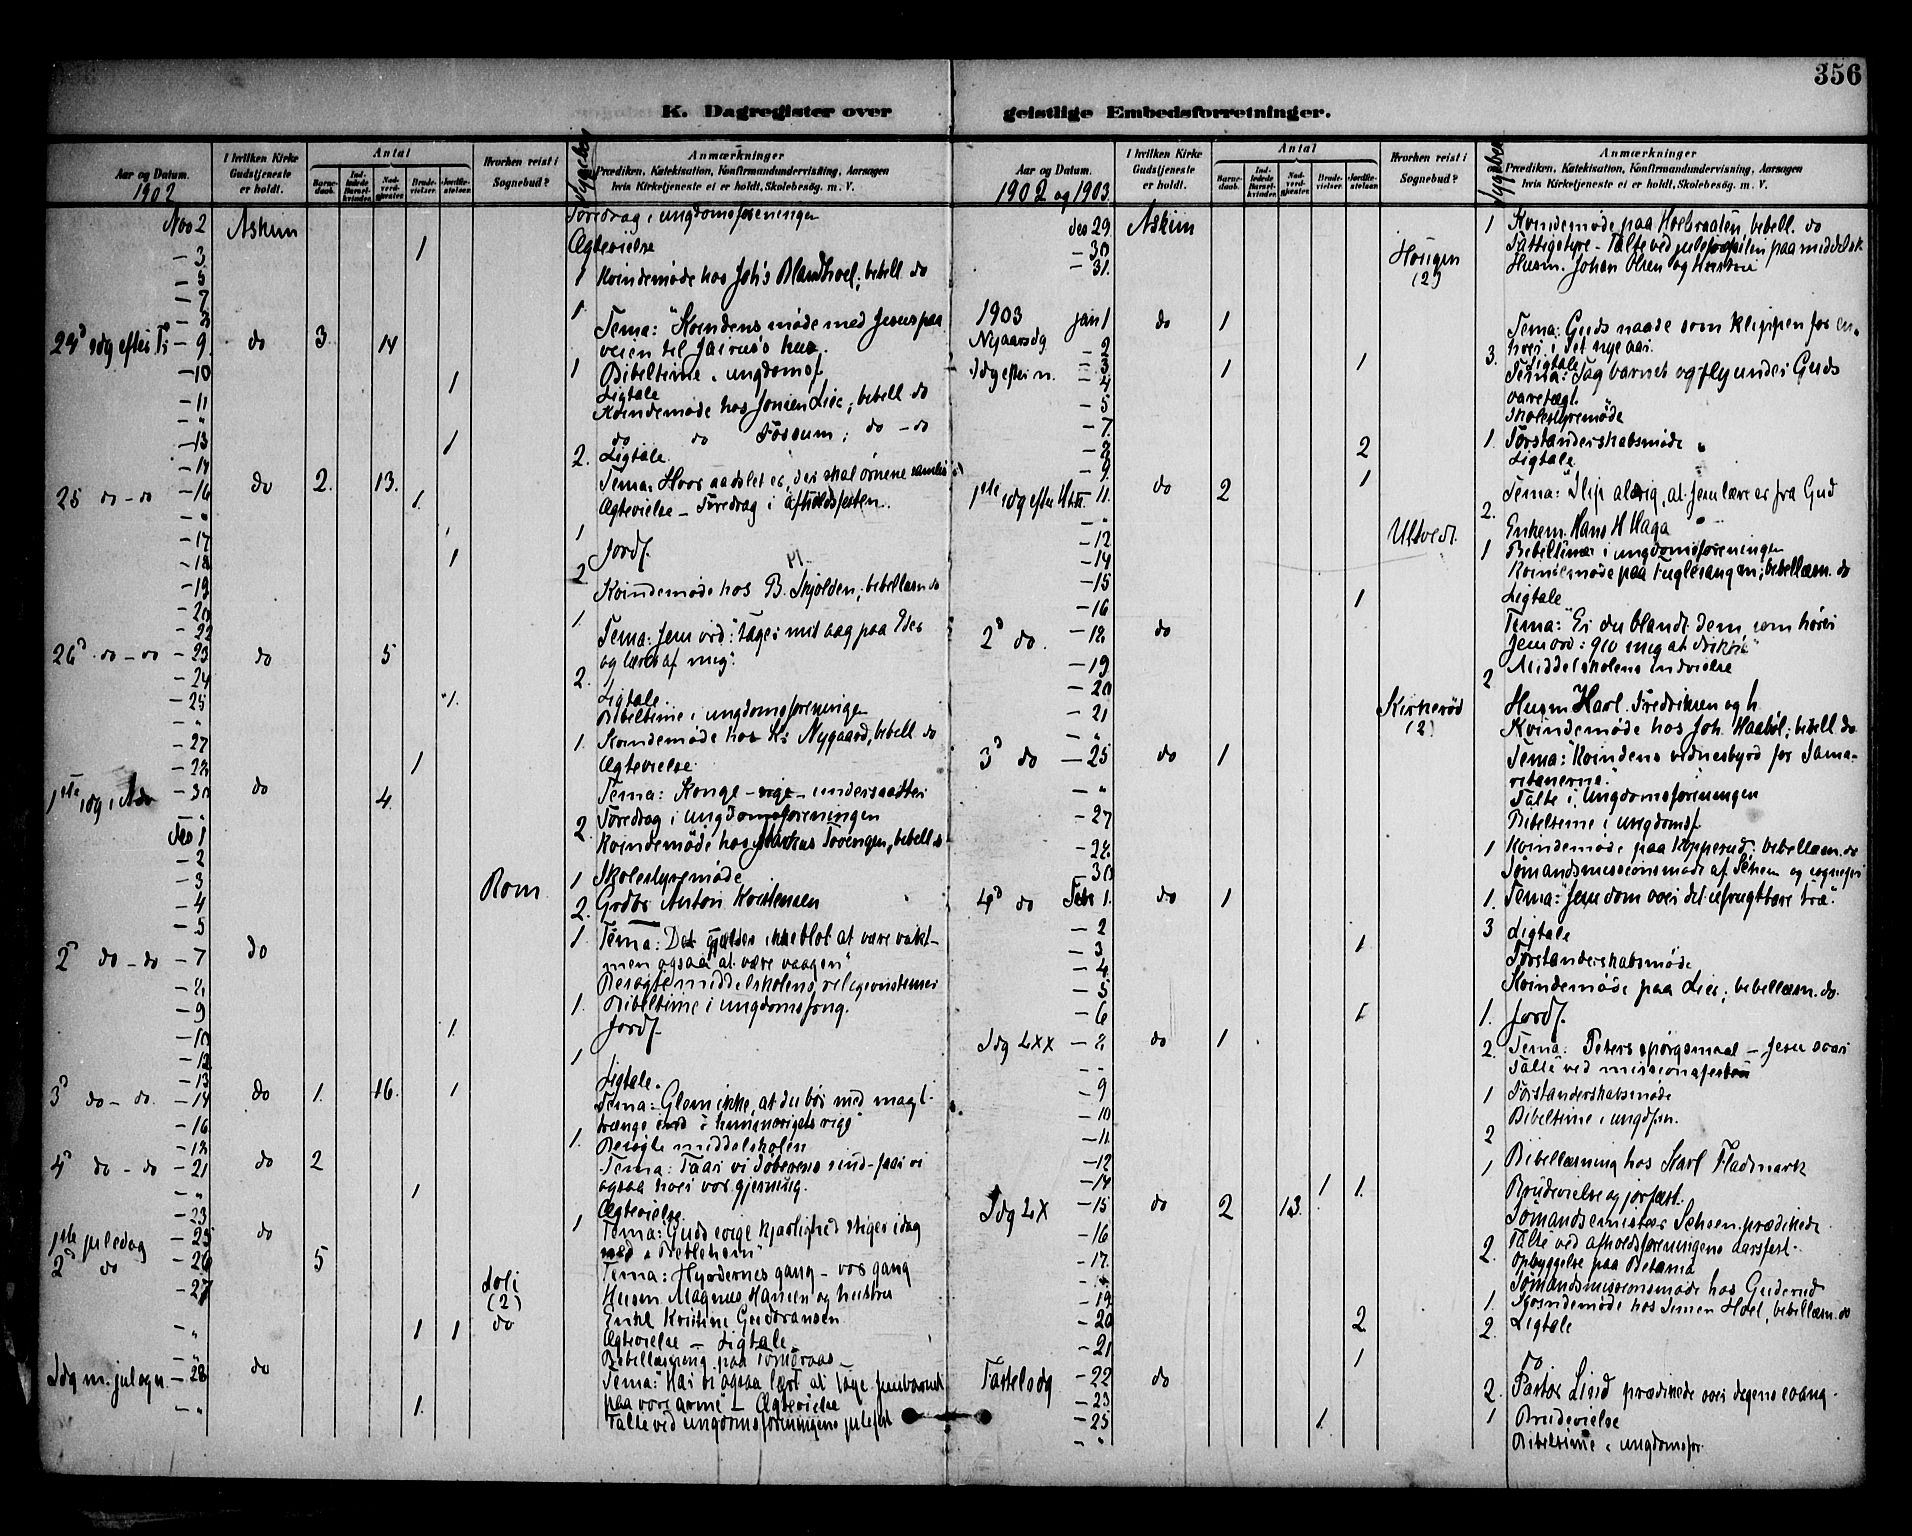 356
K. Dagregister over geistlige Embedsforretninger.
Aar og Datum.
1902
I hvilken Kirke Gudstjeneste er holdt.
Antal
Barnedaab.
Indledede Barselkvinder.
Nadverdgjester.
Brudevielser.
Jordfæstelser.
Hvorhen reist i Sognebud?
Sygebes
Anmærkninger
Prædiken, Katekisation, Konfirmandundervisning, Aarsagen
hvis Kirketjeneste ei er holdt, Skolebesøg. m. V.
Nov 2 Askim Foredrag i ungdomsforeningen
- 3 1 Ægtevielse
- 5 1 Kvindemøde hos Johs Blandhoel; bebell do
- 7
- 8 1. Tema: "Kvindens møde med Jesus paa
24d sdg efter Tr - 9 do 3 14 veien til Jairus's hus.
- 10 1 Bibeltime i ungdomsf.
1 Ligtale
- 11 Kvindemøde hos Jensen Lier; bebell do
- " do do Fossum; do - do
- 13 1 2. Ligtale.
- 14 Tema. Hvor aadslet er, der skal ørnene samles
25 do - do - 16 do 2. 13. 1. Ægtevielse - Foredrag i afholdsfesten.
- "
- 17 1 Jordf.
- 18 1 2
- 19 Kvindemøde hos B. Skjolden; bebellæsn do
- 20 1
- 22 Tema: Jesu ord: "tager mit aag paa Eder
26d do - do - 23 do 5 og lærer af mig".
- 24 2.
- 25 1. Ligtale.
- " Bibeltime i ungdomsforeningen
- 27 1. Kvindemøde hos Kr Nygaard, bebell do
- 28 1 Ægtevielse
1ste sdg i Adv - 30 do 4. Tema: Konge - rige - undersaatter
- " Foredrag i ungdomsforeningen
Des 1 2. Kvindemøde hos Markus Tovengen, bebell do
- 2
- 3 Rom 1 Skolestyremøde
- 4 2. Grdbr Anton Kristensen
- 5 1. Tema: Det gjælder ikke blot at være vakt -
2d do - do - 7 do men ogsaa at være vaagen"
- 8 Besøgte middelskolens religionstimer
- 9 1. Bibeltime i ungdomsforng.
- 10 1. Jordf.
- 12 1
- 13 Ligtale.
3d do - do. - 14 do 1. 16. 1 Tema: Glem ikke, at du bør med magt
- 16 trænge ind i himmeriges rige"
- 18 1. Besøgte middelskolen
4d do - do - 21 do 2 Tema: Faar vi Døberens sind - faar vi
ogsaa hver vor gjerning.
- " 1 Ægtevielse
- 23 1
1ste juledag - 25 do Tema: Guds evige kjærlighed stiger idag
ned i Betlehem"
2d do - 26 5 Tema: Hyrdernes gang - vor gang
- 27 (2) Husm Magnus Hansen og hustru
do Enke Kristine Gudbransen
- " 1 1 Ægtevielse - Ligtale
- " Bibellæsning paa Tomteraas
Sdg m. jul og n. - 28 do Tema: "Har vi ogsaa lært at tage Jesubarnet
paa vore arme" - Ægtevielse
- " 1. Talte ved ungdomsforeningens julefest
Aar og Datum.
1902 og 1903.
I hvilken Kirke Gudstjeneste er holdt.
Antal
Barnedaab.
Indledede Barselkvinder.
Nadverdgjester.
Brudevielser.
Jordfæstelser.
Hvorhen reist i Sognebud?
Sygebes
Anmærkninger
Prædiken, Katekisation, Konfirmandundervisning, Aarsagen
hvis Kirketjeneste ei er holdt, Skolebesøg. m. V.
Des 29 Askim 1 Kvindemøde paa Hoelsraaten, bebell. do
- 30 Fattigstyre - Talte ved julefesten paa middelsk
- 31. (2) Husm. Johan Olsen og hustru
1903 Jan 1 do 1 Tema: Guds naade som klippen for en-
Nyaarsdg hver i det nye aar.
- 2 3. Ligtale
Sdg efter n. - 3 1 1 Tema: Tag barnet og fly under Guds
- 4 varetægt.
- 5 Skolestyremøde
- 7 1. Forstanderskabsmøde
- 8 2 Ligtale
- 9 1
1ste sdg efter Hktr. - 11. do 2 Tema: "Slip aldrig, at Jesu lære er fra Gud
- " 2.
- 12 Ultvedt. Enkem. Hans H Haga
- 14 1 Bibeltime i ungdomsforeningen
- 15 Kvindemøde paa Fuglesangen; bebellæsn. do
- 16 1 Ligtale
2d do. - 18 do Tema: "Er du blandt dem, som hører
Jesu ord: giv mig at drikke"
- 19 Middelskolens indvielse
- 20 2
- 21 Kirkerød (2) Husm Karl Fredriksen og h.
- " Kvindemøde hos Joh. Haabøl; bebell do
3d do - 25 do 1 Tema: "Kvindens vidnesbyrd for Sama-
ritanerne."
- " Talte i ungdomsforeningen
- 27 Bibeltime i ungdomsf
- 28 1 Kvindemøde paa Kopperud: bebellæsn. do
- 30 Sømandsmissionsmøde
4d do Febr 1. do 1 1. Tema: "Jesu dom over det ufrugtbare træ."
- 2 3 Ligtale
- 3 1
- 4 Forstanderskabsmøde
- 5 Kvindemøde paa Lier; bebellæsn. do.
- 6 1 1. Jordf.
Sdg LXX - 8 do 1 2. Tema: Peters spørgsmaal - Jesu svar
- " Talte ved missionsfesten
- 9 1 Forstanderskabsmøde
- 10 Bibeltime i ungdsfen.
- 11. 2
- 12 1 Bibellæsning hos Karl Fladmark
- 14 1 1. Brudevielse og jorfæst.
Sdg LX - 15 do 2 13. Sømandsmissær Schøen prædikede
- 16 2. Talte ved afholdsforeningens aarsfest.
- 17. Opbyggelse paa Betania
- " Sømandsmissionsmøde hos Guderud
- 19 1. Kvindemøde hos Simen Hoel, bebellæsn. do
- 20 2 2. Ligtale
- 21 1 do
Fastelsdg - 22 do 2. Pastor Lind prædikede over dagens evang.
- 23
- 25 1. 1 Brudevielse
- " Bibeltime i ungdomsfor.